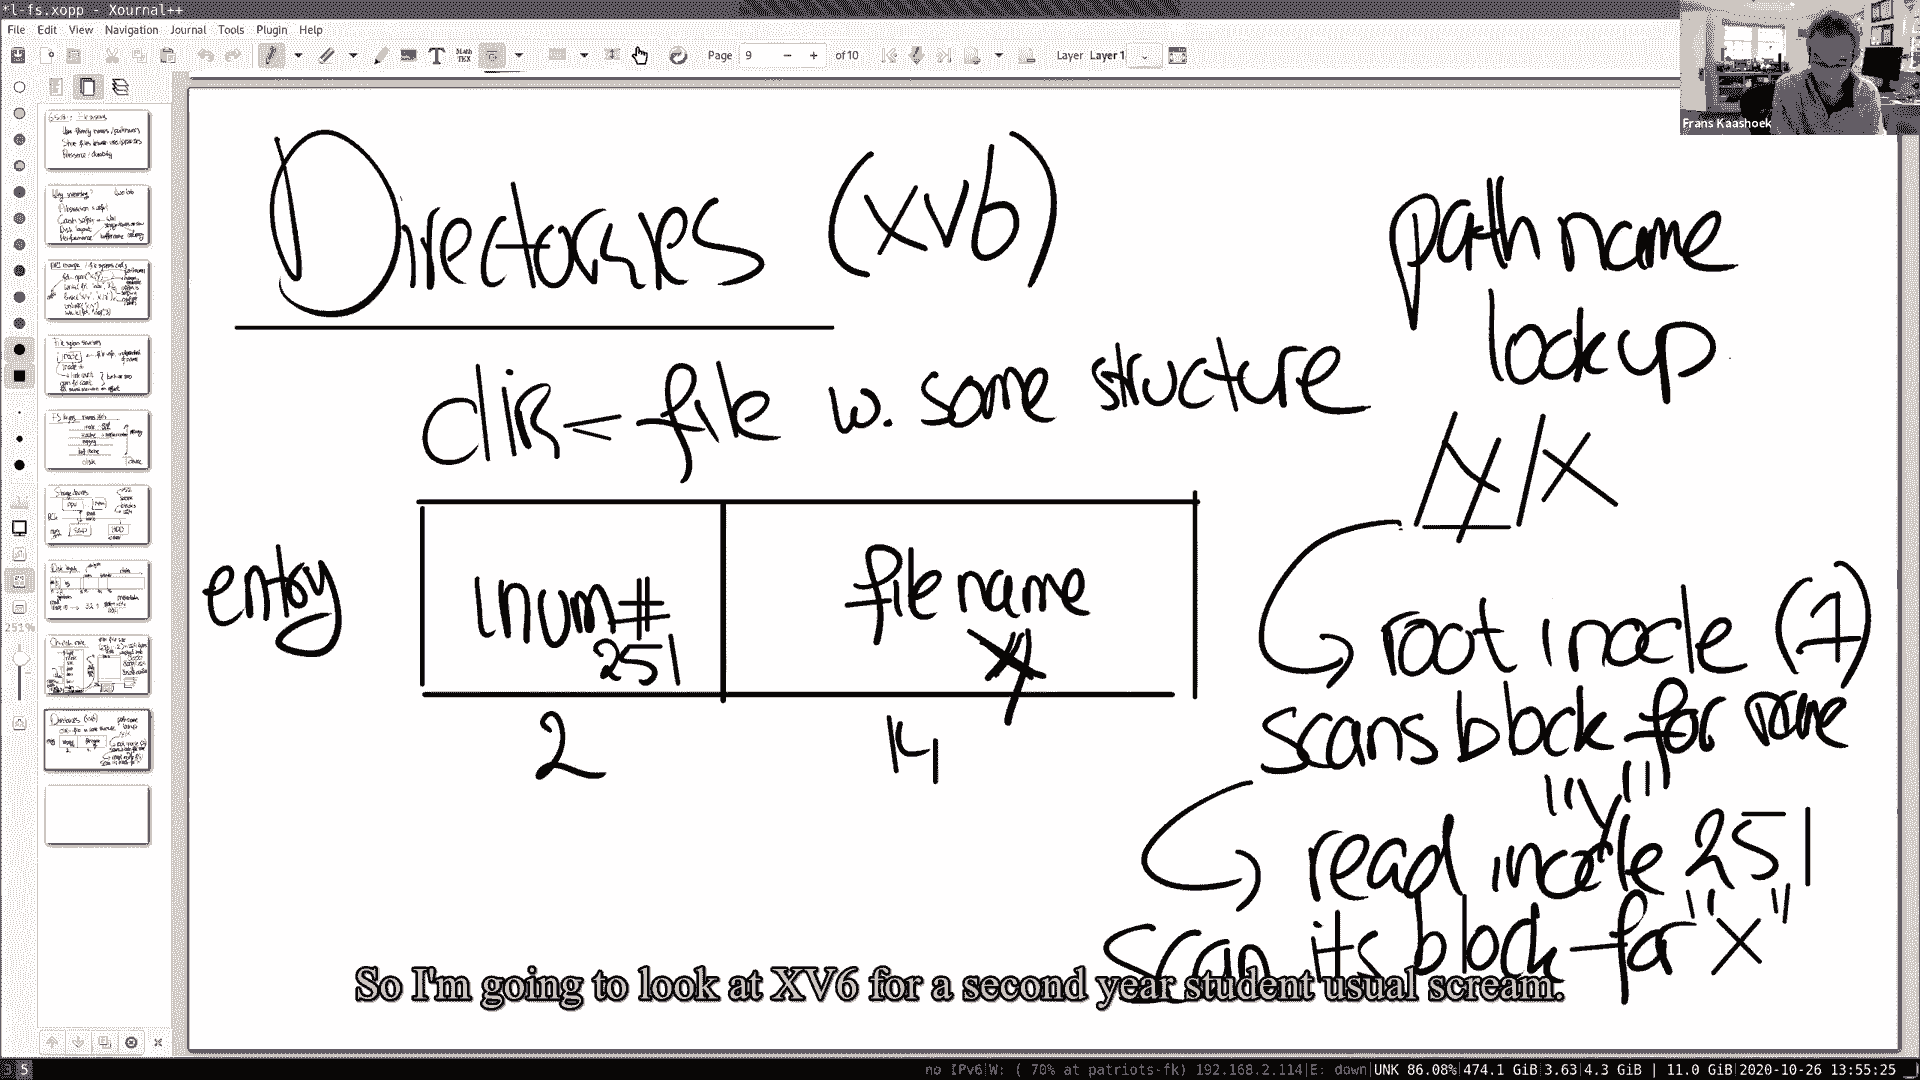 *l-fs.xopp - Xournal++
File Edit View Navigation Journal Tools Plugin Help
Page 9 of 10 Layer Layer 1
Frans Kaashoek
251%
Directories (xv6)
dir ← file w. some structure
entry
inum# filename
251 y
2 14
path name
lookup
/y/x
root inode (1)
scans block for name
"y"
read inode 251
scan its block for "x"
So I'm going to look at XV6 for a second year student usual scream.
3 5
no IPv6|W: ( 70% at patriots-fk) 192.168.2.114|E: down|UNK 86.08%|474.1 GiB|3.63|4.3 GiB | 11.0 GiB|2020-10-26 13:55:25